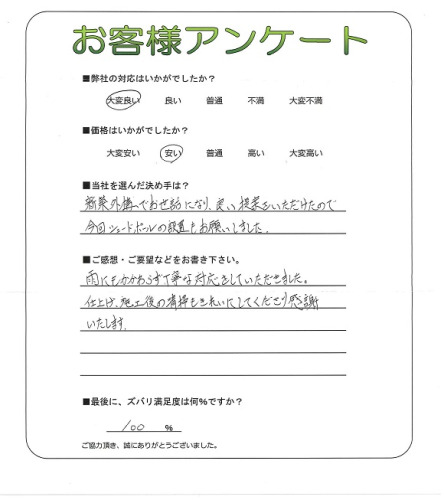 お客様アンケート
■弊社の対応はいかがでしたか？
大変良い 良い 普通 不満 大変不満
■価格はいかがでしたか？
大変安い 安い 普通 高い 大変高い
■当社を選んだ決め手は？
新築外構でお世話になり、良い提案をいただけたので
今回シェードポールの設置もお願いしました。
■ご感想・ご要望などをお書き下さい。
雨にもかかわらず丁寧な対応をしていただきました。
仕上げ、施工後の清掃もきれいにしてくださり感謝
いたします。
■最後に、ズバリ満足度は何％ですか？
100 ％
ご協力頂き、誠にありがとうございました。